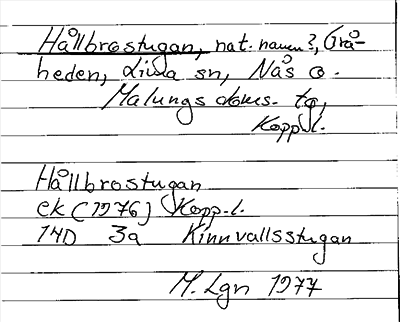 Hållbrostugan, nat. namn?, (Grå-
heden, Lima sn, Nås o.
Malungs doms. tg,
Kopp.l.
Hållbrostugan
ek (1976) Kopp.l.
14D 3a Kinnvallsstugan
M. Lgn 1977